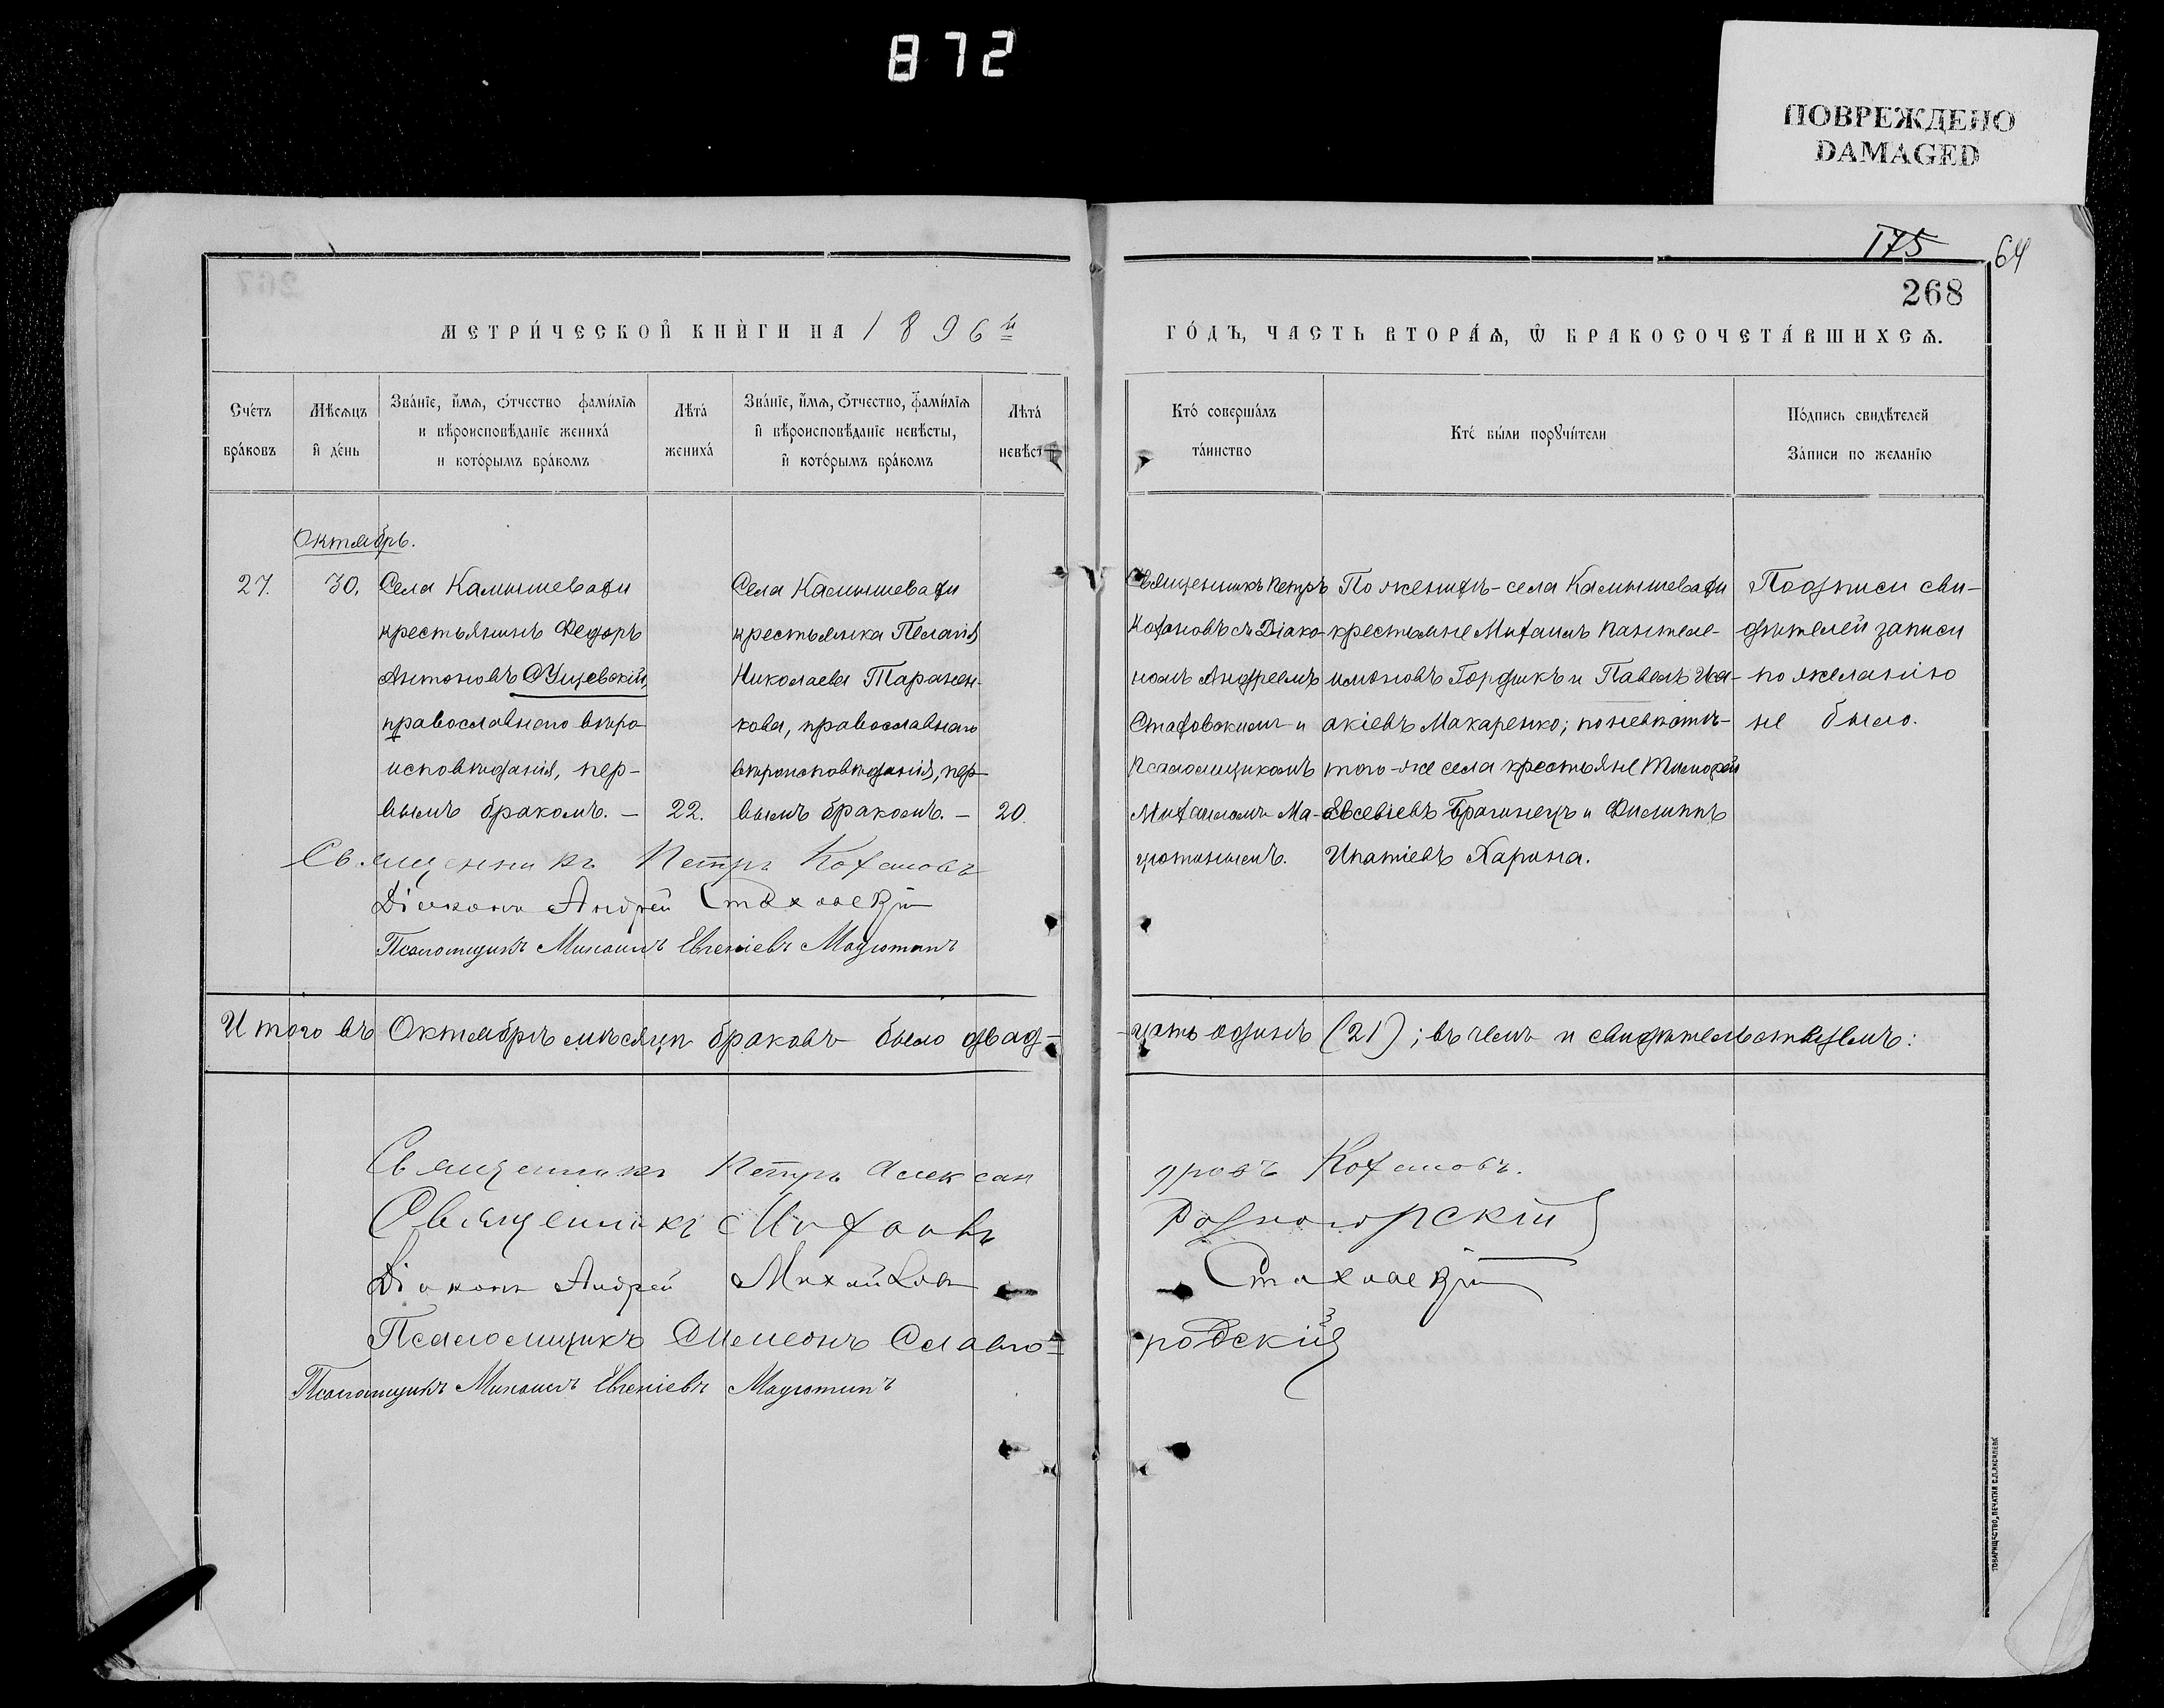 872
ПОВРЕЖДЕНО
DAMAGED
175
64
268
МЕТРИ́ЧЕСКОЙ КНИ́ГИ НА 1896й
ГО́ДЪ, ЧАСТЬ ВТОРА́Ѧ, Ѿ БРАКОСОЧЕТА́ВШИХСѦ.
Сче́тъ
бра́ковъ
Мѣ́сѧцъ
и҆ де́нь
Зва́нїе, и҆́мѧ, ѻ҆́тчество фами́лїѧ
и вѣроисповѣ́данїе жениха́
и кото́рымъ бра́комъ
Лѣта́
жениха́
Зва́нїе, и҆́мѧ, ѻ҆́тчество, фами́лїѧ
и҆ вѣроисповѣ́данїе невѣ́сты,
и҆ кото́рымъ бра́комъ
Лѣта́
невѣ́сты
Кто́ соверша́лъ
та́инство
Кто́ бы́ли порꙋчи́тели
По́дпись свидѣ́телей
За́писи по жела́нїю
Октябрь.
27. 30.
Села Камышевахи
крестьянинъ Ѳедоръ
Антоновъ
православнаго вѣро
исповѣданія, пер-
вымъ бракомъ. — 22.
Села Камышевахи
крестьянка Пелагія
Николаева Таранен-
кова, православнаго
вѣроисповѣданія, пер-
вымъ бракомъ. — 20.
Священникъ Петръ
Кохановъ съ Діако-
номъ Андреемъ
Стаховскимъ и
Псаломщикомъ
Михаиломъ Ма-
цютинымъ.
По женихѣ - села Камышевахи
крестьяне Михаилъ Пантеле-
имоновъ Гордикъ и Павелъ Иса-
акіевъ Макаренко; по невѣстѣ-
того-же села крестьяне Тимофей
Евсевіевъ Брагинецъ и Филиппъ
Ипатіевъ Харина.
Подписи сви-
дѣтелей записи
по желанію
не было.
Священникъ Петръ Кохановъ
Діаконъ Андрей Стаховскій
Псаломщикъ Михаилъ Евгеніевъ Мацютинъ
Итого въ Октябрѣ мѣсяцѣ браковъ было двад-
-цать одинъ (21); въ чемъ и свидѣтельствуемъ:
Священникъ Петръ Алексан
дровъ Кохановъ.
Священникъ Михаилъ
Діаконъ Андрей Михайловъ
Стаховскій
Псаломщикъ Симеонъ Славго=
родскій
Псаломщикъ Михаилъ Евгеніевъ Мацютинъ
ТОВАРИЩЕСТВО „ПЕЧАТНЯ С.П.ЯКОВЛЕВА“